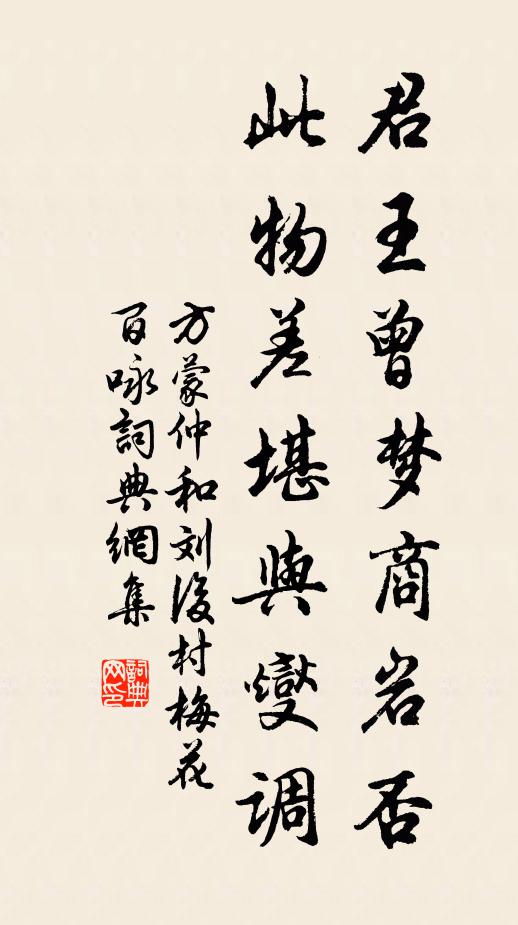 君王曾梦商岩否
此物差堪與燮调
方蒙仲和刘後村梅花
百咏詞典網集
詞典网印